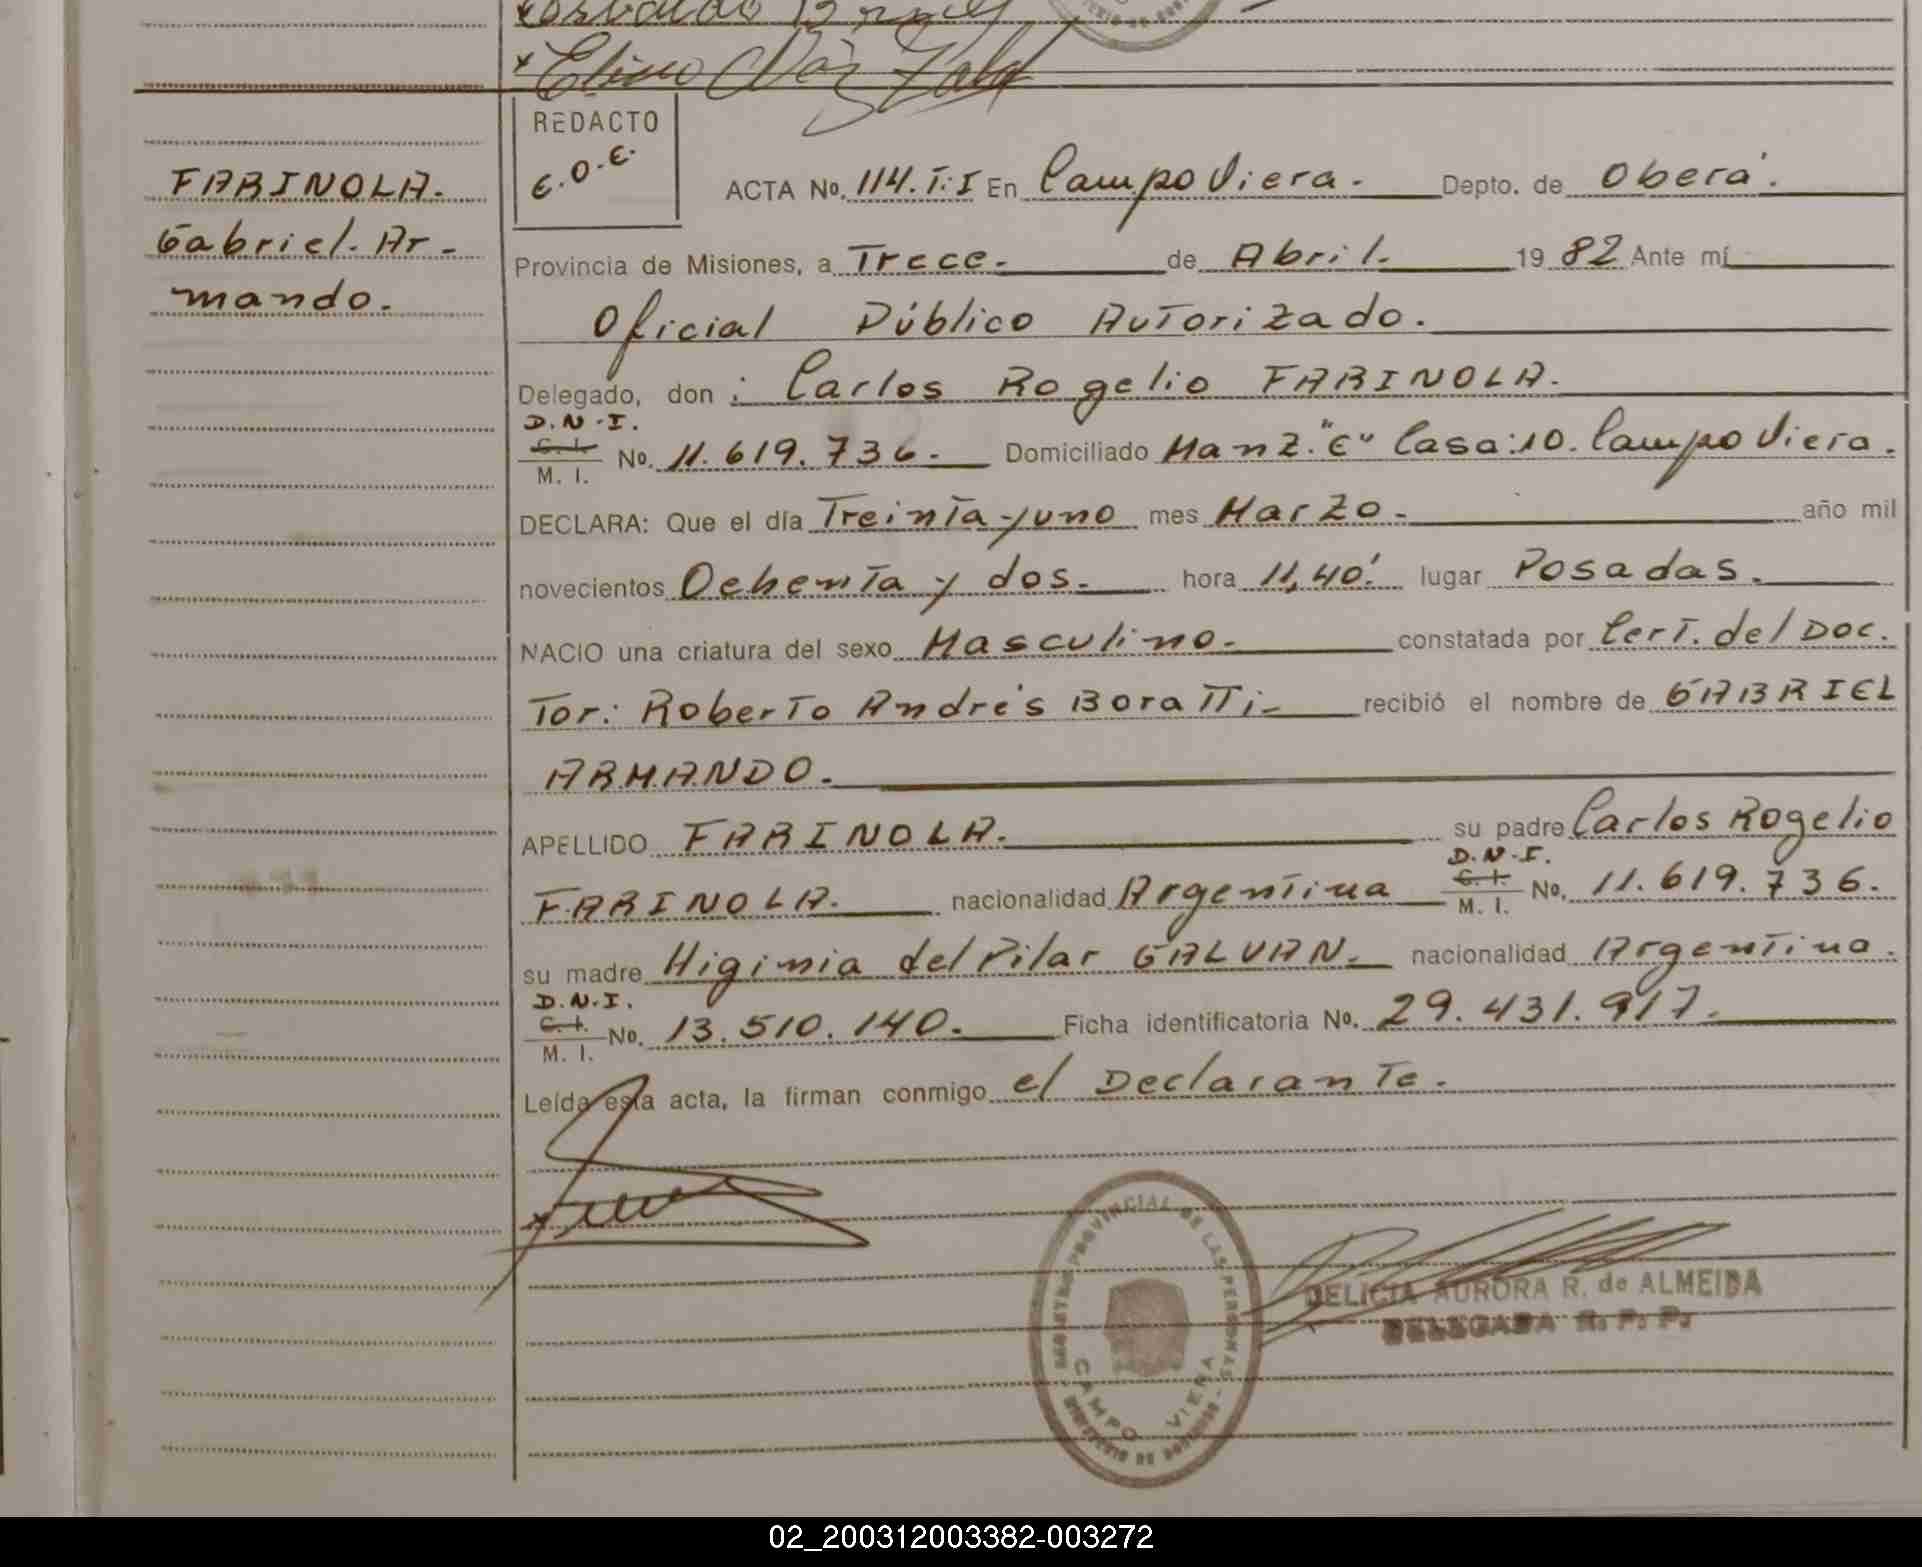 FARINOLA.
Gabriel. Ar-
mando.
REDACTO
E.O.E.
ACTA No. 114. T:I En Campo Viera. Depto. de Oberá.
Provincia de Misiones, a Trece. de Abril. 1982 Ante mí
Oficial Público Autorizado.
Delegado, don : Carlos Rogelio FARINOLA.
D.N.I.
C. I.
M. I.
No. 11.619.736. Domiciliado Manz. "E" Casa:10. Campo Viera.
DECLARA: Que el día Treinta y uno mes Marzo. año mil
novecientos Ochenta y dos. hora 11,40'. lugar Posadas.
NACIO una criatura del sexo Masculino. constatada por Cert. del Doc.
Tor: Roberto Andrés Boratti recibió el nombre de GABRIEL
ARMANDO.
APELLIDO FARINOLA. su padre Carlos Rogelio
FARINOLA. nacionalidad Argentina
D.N.I.
C. I.
M. I.
No. 11.619.736.
su madre Higinia del Pilar GALVAN. nacionalidad Argentina.
D.N.I.
C. I.
M. I.
No. 13.510.140. Ficha identificatoria No. 29.431.917.
Leída esta acta, la firman conmigo el Declarante.
PROVINCIAL DE LAS PERSONAS
CAMPO VIERA
DELICIA AURORA R. de ALMEIDA
DELEGADA R. P. P.
02_200312003382-003272